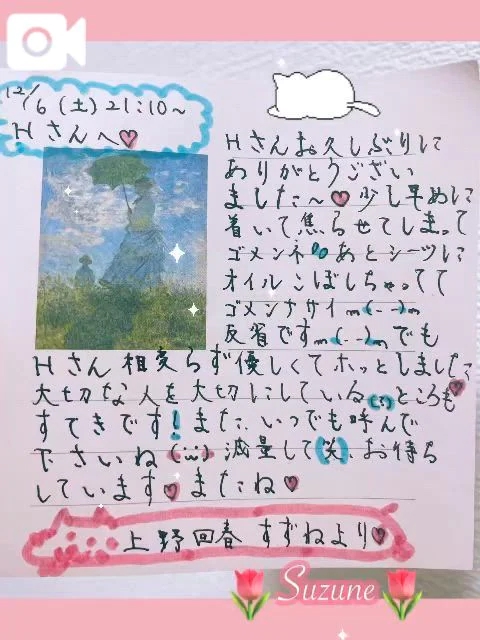 12/6(土)21:10~
Hさんへ♡
Hさんお久しぶりに
ありがとうござい
ました~♡少し早めに
着いて焦らせてしまって
ゴメンネ あとシーツに
オイルこぼしちゃってて
ゴメンナサイm(--)m
反省ですm(--)mでも
Hさん相変らず優しくてホッとしました
大切な人を大切にしている(?)ところも♡
すてきです!また、いつでも呼んで
下さいね(¨)減量して(笑)お待ち
しています♡またね♡
上野回春 すずねより♡
Suzune